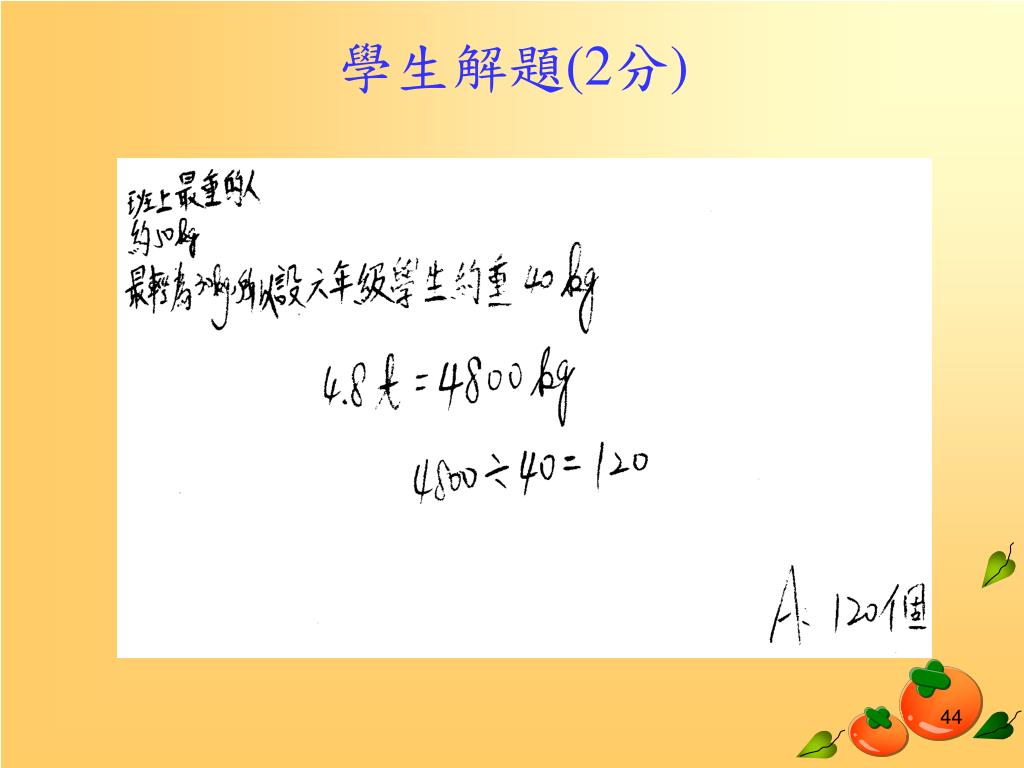 學生解題(2分)
班上最重的人
約50kg
最輕為30kg,所以設六年級學生約重40kg
4.8t=4800kg
4800÷40=120
A. 120個
44